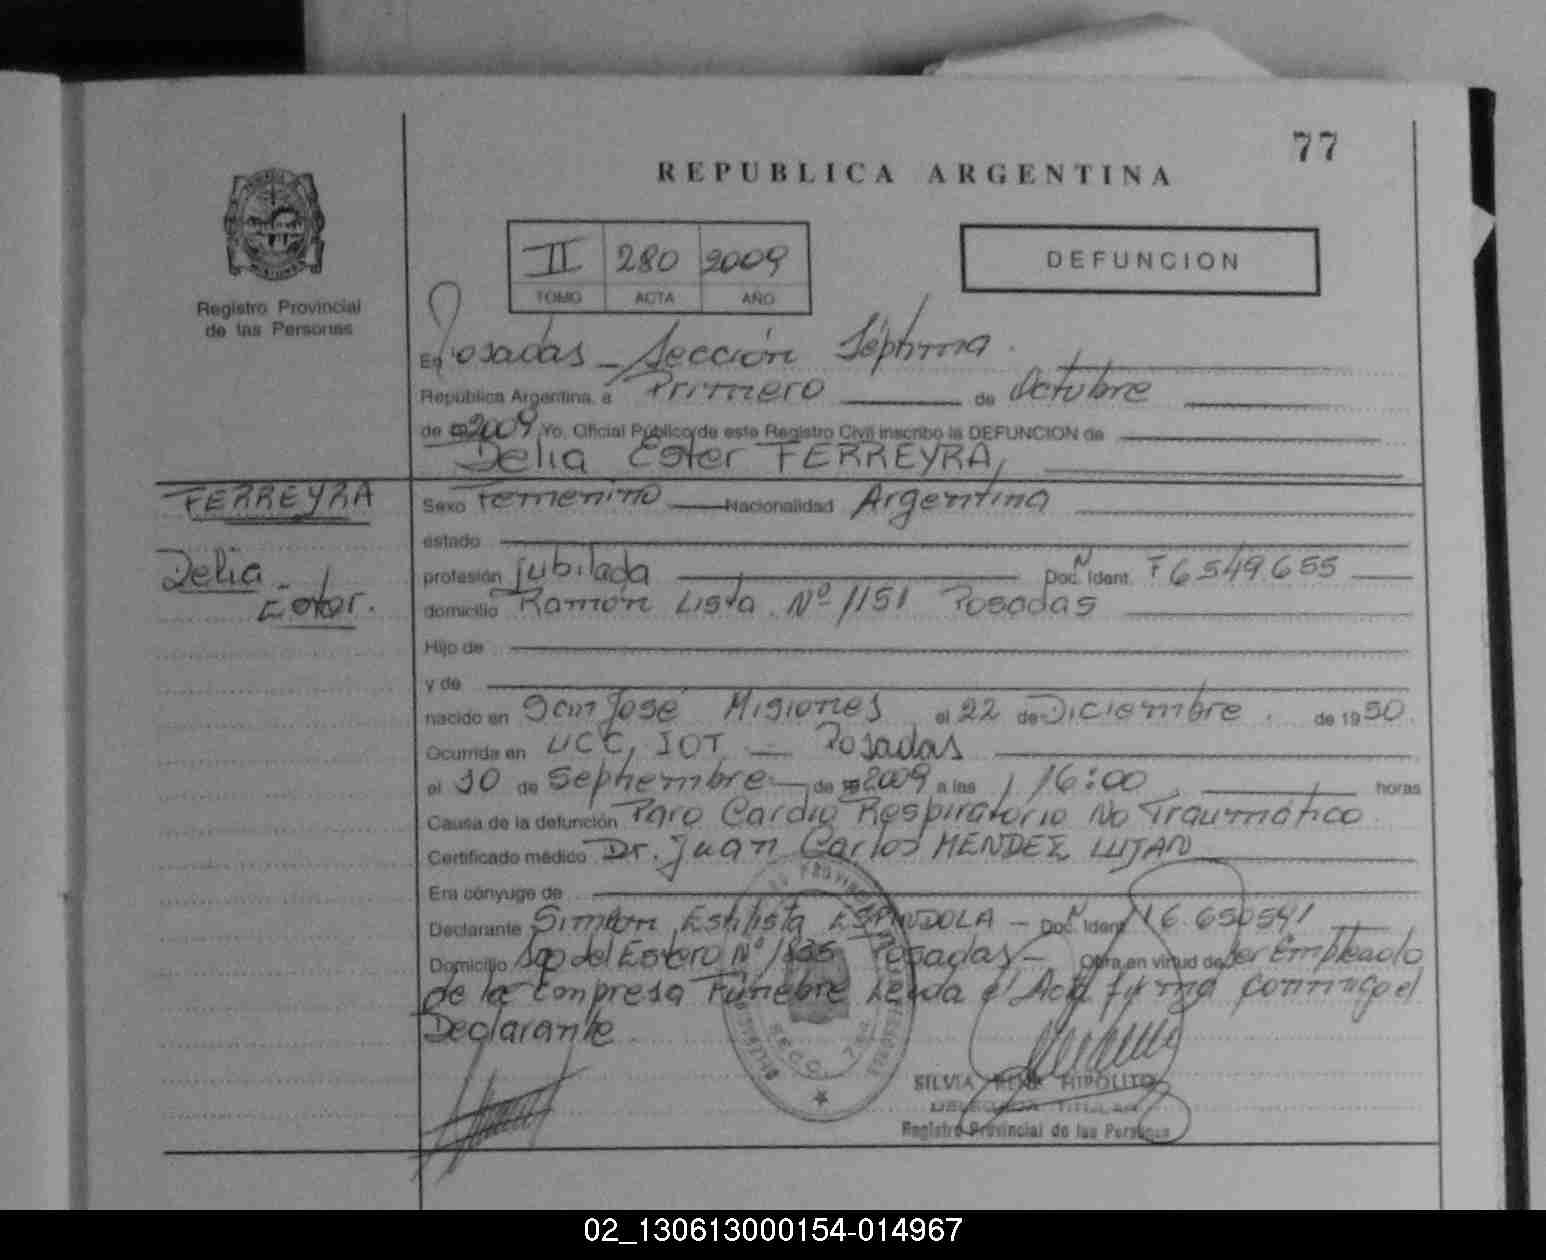 77
REPUBLICA ARGENTINA
II 280 2009
TOMO ACTA AÑO
DEFUNCION
Registro Provincial
de las Personas
En Posadas - Sección Séptima
República Argentina, a Primero de Octubre
de 2009 Yo, Oficial Público de este Registro Civil inscribo la DEFUNCION de
Delia Ester FERREYRA,
FERREYRA
Delia
Ester.
Sexo Femenino Nacionalidad Argentina
estado
profesión jubilada Doc. Ident. F6549.655
domicilio Ramón Lista Nº 1151 Posadas
Hijo de
y de
nacido en San José Misiones el 22 de Diciembre de 1950.
Ocurrida en UCC, IOT - Posadas
el 30 de Septiembre de 2009 a las 16:00 horas
Causa de la defunción Paro Cardio Respiratorio No Traumático
Certificado médico Dr. Juan Carlos MENDEZ LUJAN
Era cónyuge de
Declarante ESPINDOLA - Doc. Ident. 16.650541
Domicilio Sgo del Estero Nº Posadas - Obra en virtud de Ser Empleado
de la Empresa Fúnebre Leida el Acta firma conmigo el
Declarante
SILVIA HIPOLITO
DELEGADA TITULAR
Registro Provincial de las Personas
02_130613000154-014967